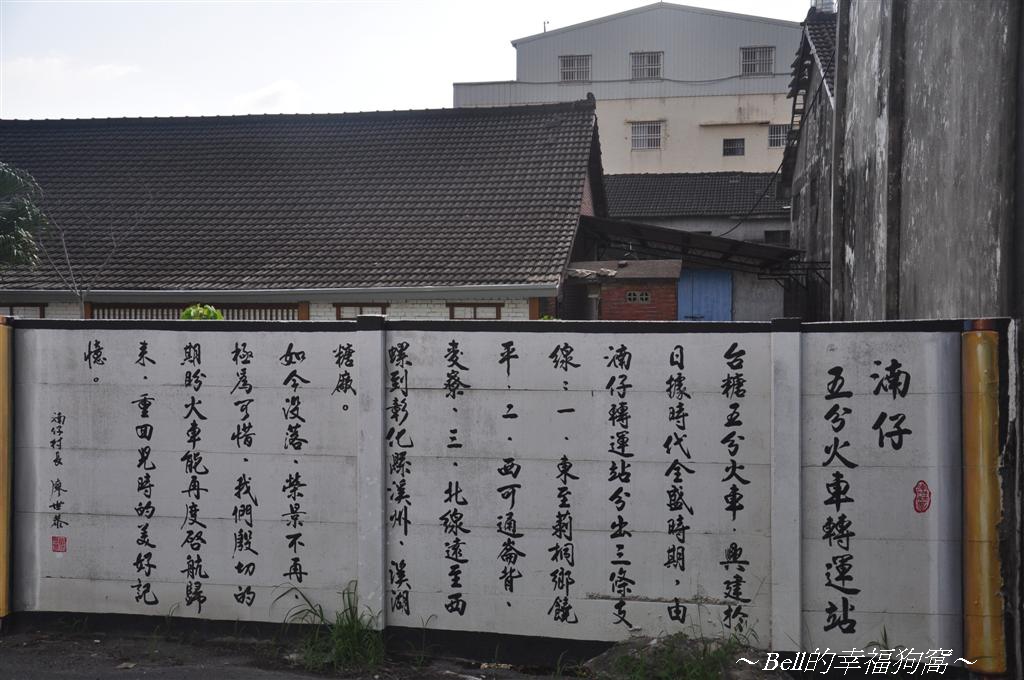 湳仔
五分火車轉運站
台糖五分火車　興建於
日據時代全盛時期，由
湳仔轉運站分出三條支
線：一、東至莿桐鄉饒
平、二、西可通崙背、
麥寮、三、北線遠至西
螺到彰化縣溪州、溪湖
糖廠。
如今沒落、榮景不再
極為可惜、我們殷切的
期盼火車能再度啓航歸
來、重回兒時的美好記
憶。
湳仔村長 廖世恭
～Bell的幸福狗窩～